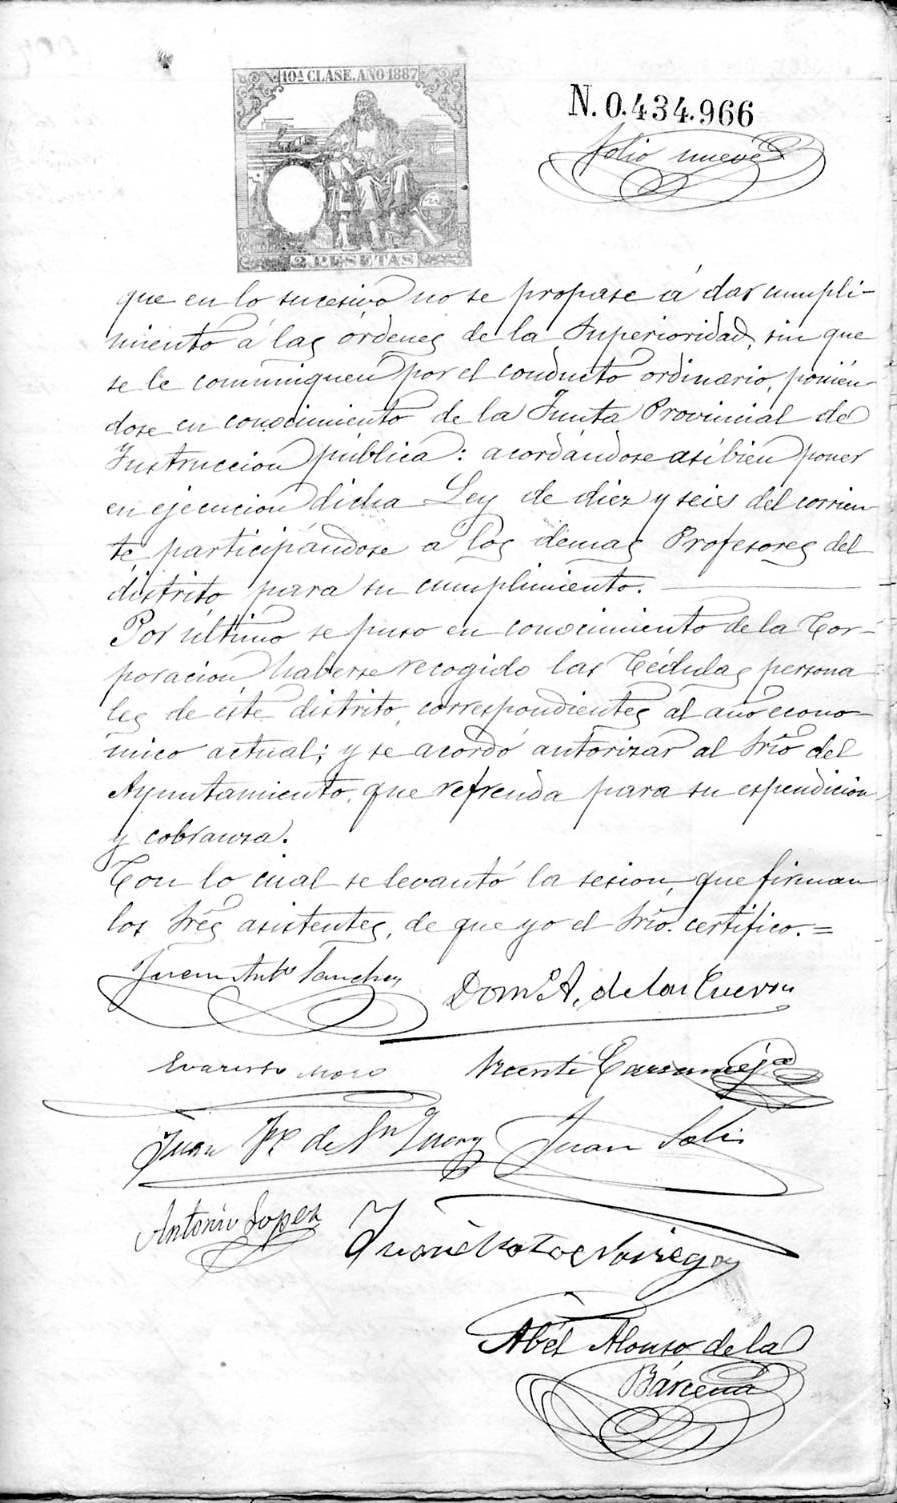 10ª CLASE. AÑO 1887
2 PESETAS
N. 0.434.966
folio nueve
que en lo sucesivo no se propase á dar cumpli-
miento á las órdenes de la Superioridad, sin que
se le comuniquen por el conducto ordinario, ponién-
dose en conocimiento de la Junta Provincial de
Instruccion pública: acordándose asi bien poner
en ejecucion dicha Ley de diez y seis del corrien-
te participándose a los demas Profesores del
distrito para su cumplimiento.
Por último se puso en conocimiento de la Cor-
poracion haberse recogido las Cédulas persona-
les de éste distrito, correspondientes al año econo-
mico actual; y se acordó autorizar al Srio del
Ayuntamiento, que refrenda para su espendicion,
y cobranza.
Con lo cual se levantó la sesion, que firman
los Sres asistentes, de que yo el Srio. certifico.=
Juan Antº Sanchez
Domº A. de las Cuevas
Evaristo Moro
Vicente
Juan de
Juan Solis
Antonio Lopez
Noriega
Abél Alonso de la
Bárcena